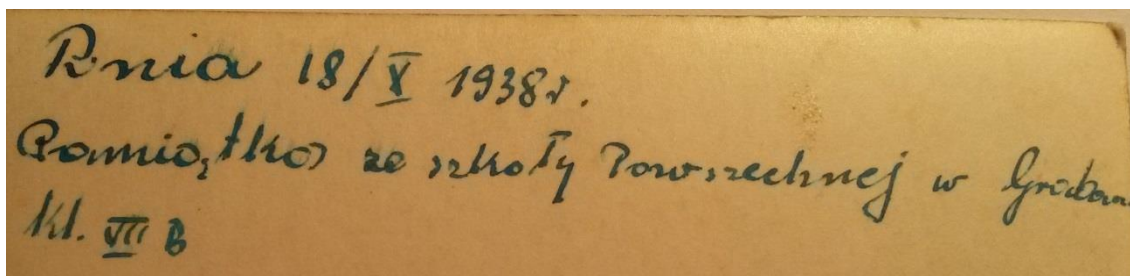 Dnia 18/X 1938r.
Pamiątka ze szkoły Powszechnej w
kl. VII B